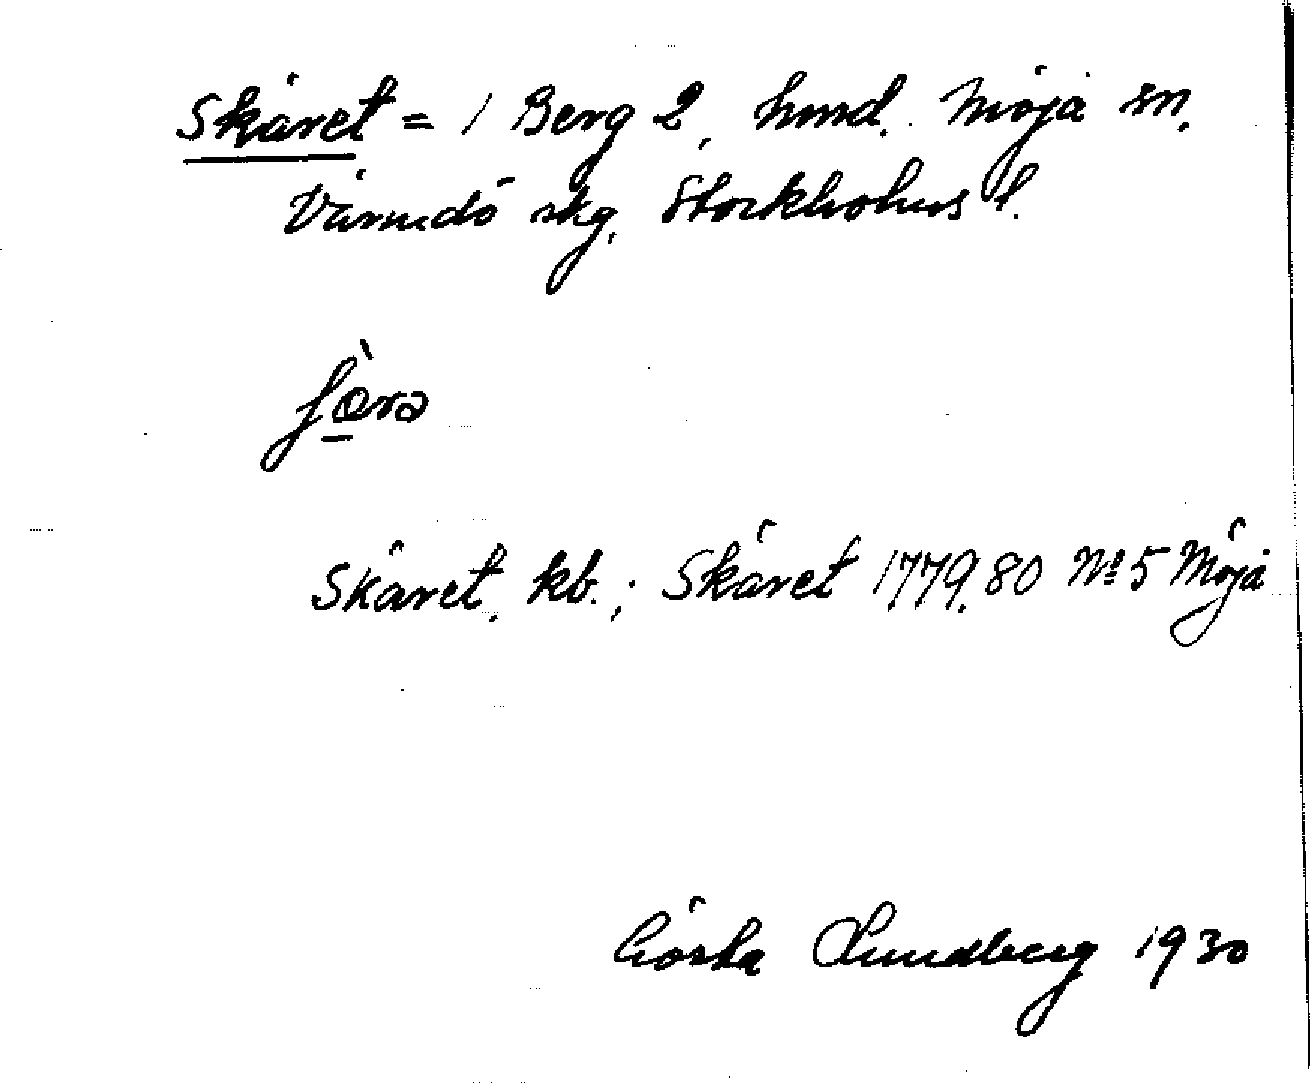 Skäret = 1 Berg 2, hmd. Möja sn.
Värmdö skg, Stockholms l.
ʃæ̀rə
Skäret, kb.; Skäret 1779,80 No 5 Möja
Gösta Lundberg 1930